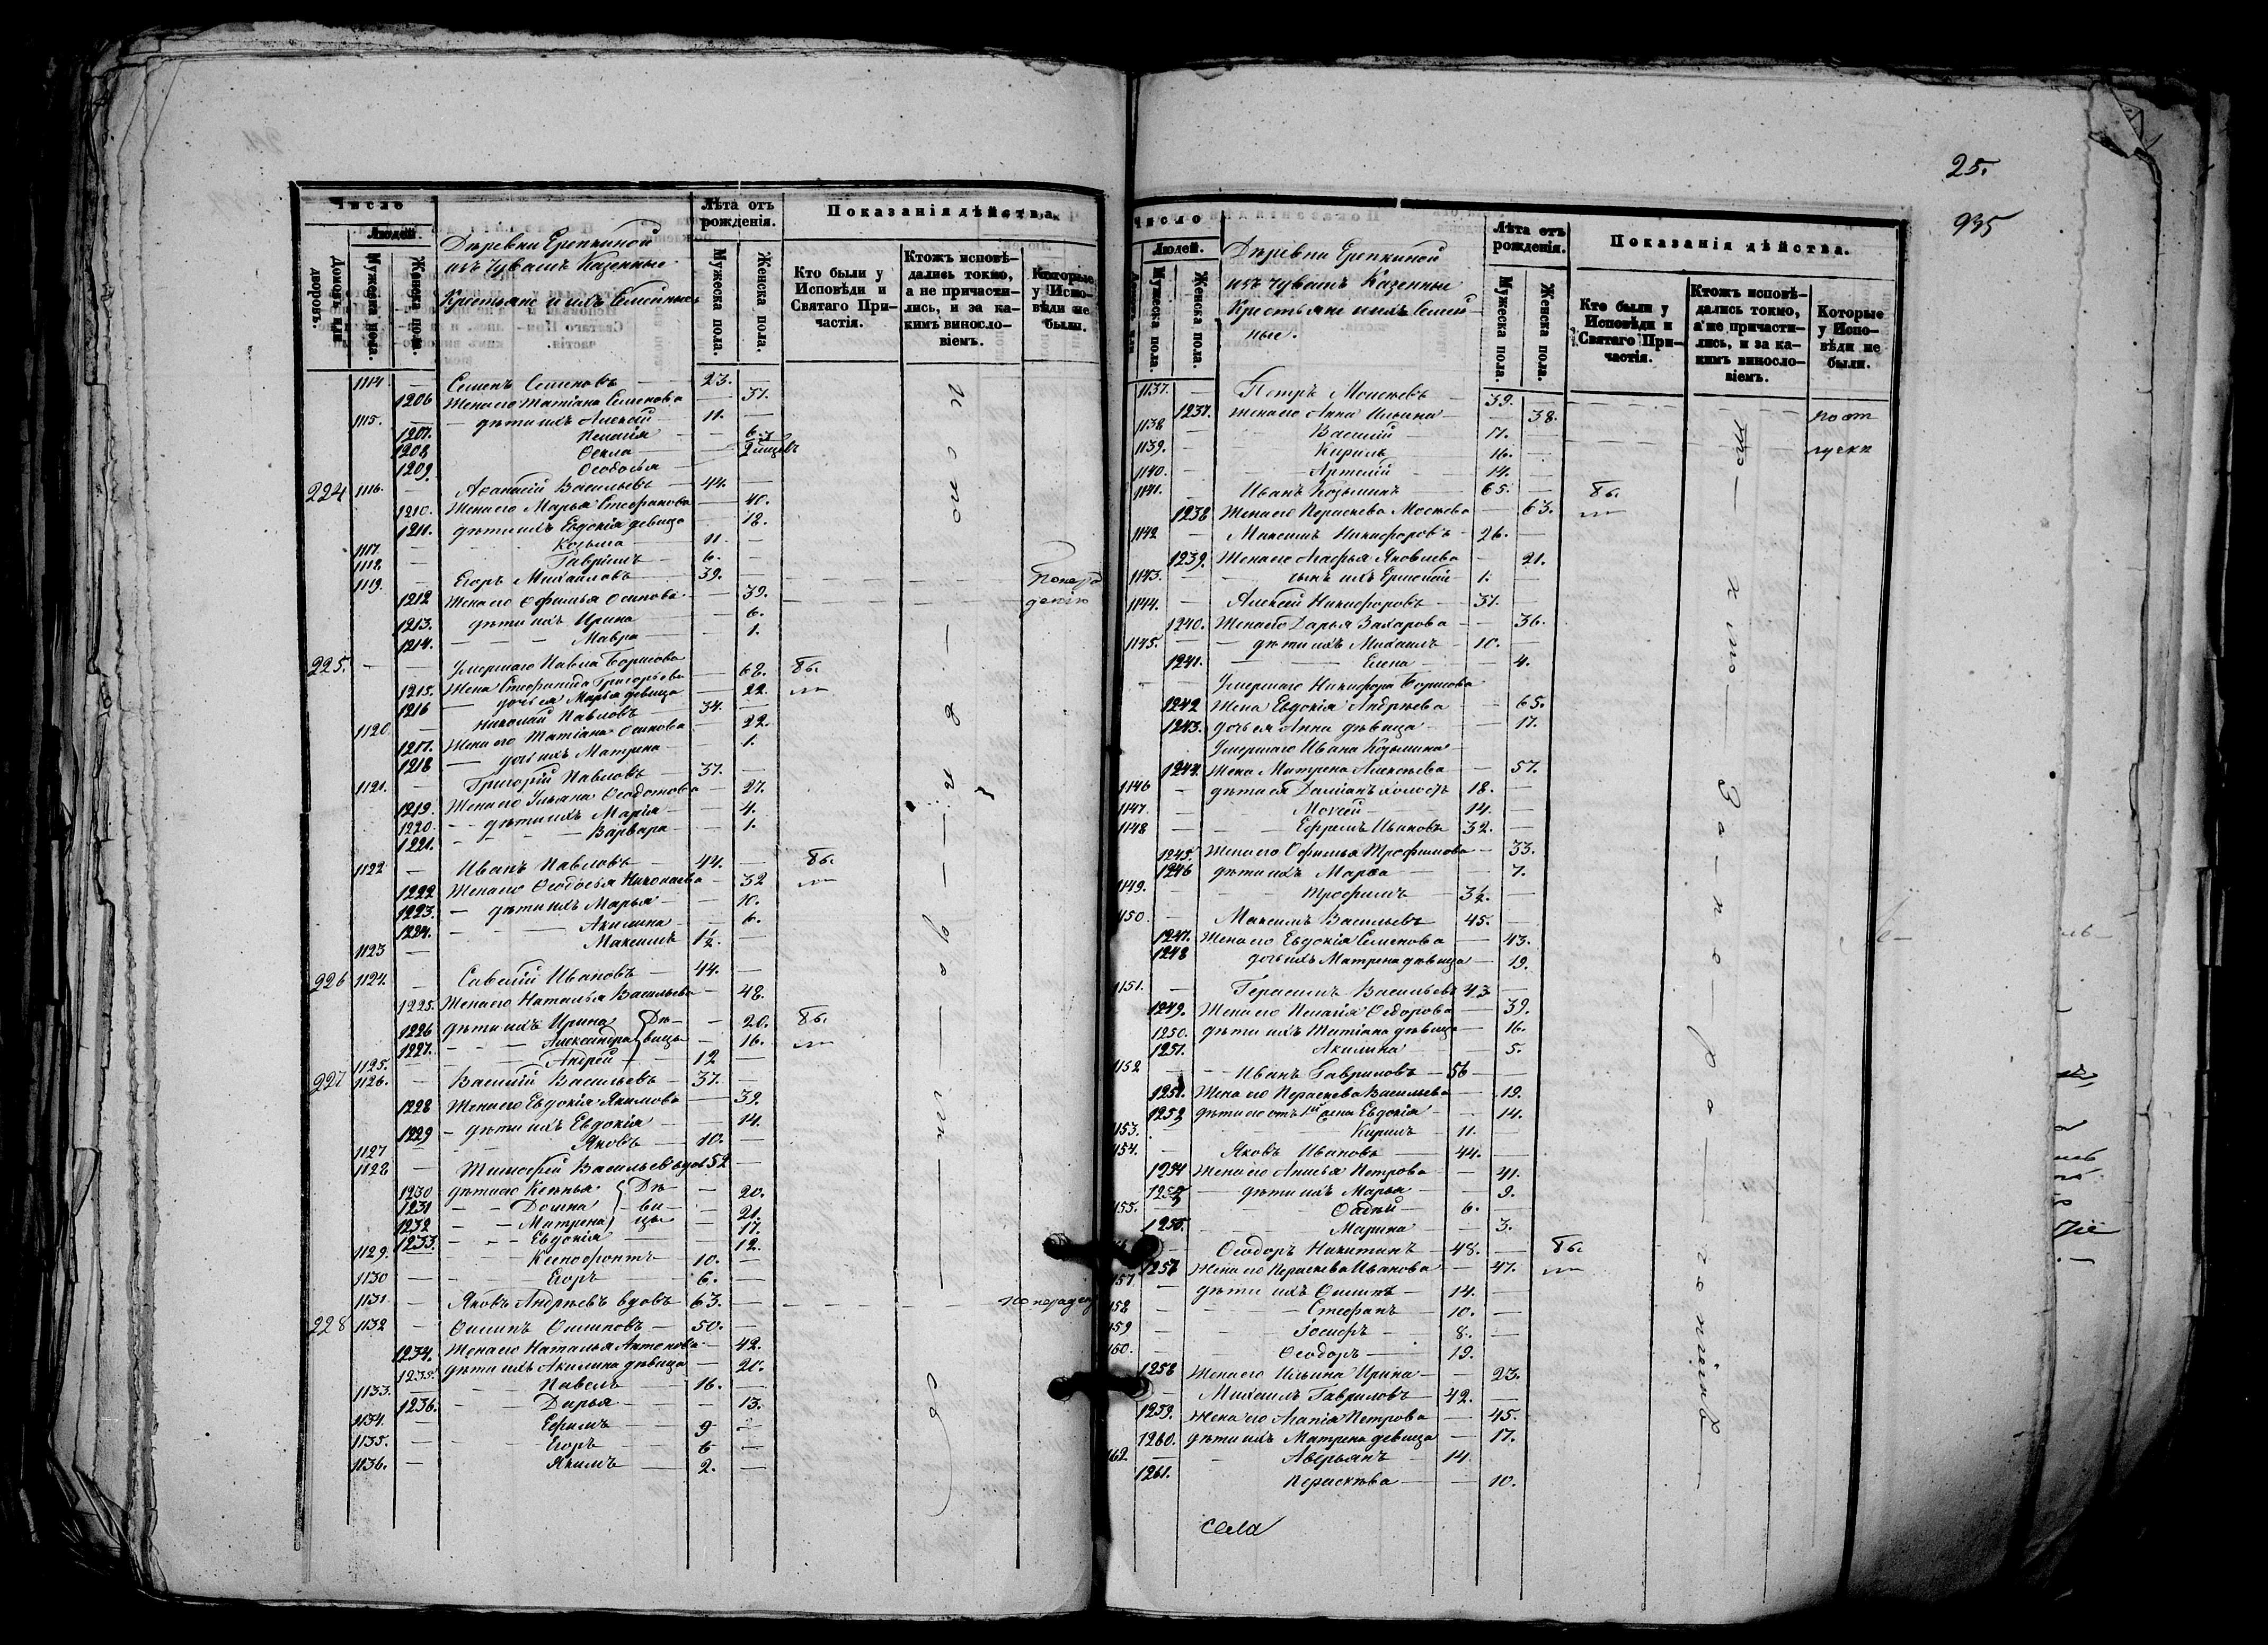 25.
935
Число
Людей.
Домовъ или дворовъ.
Мужеска пола.
Женска пола.
Деревни Ерепкиной
изъ Чувашъ Казенные
Крестьяне и ихъ Семейные
Лѣта отъ рожденія.
Мужеска пола.
Женска пола.
Показанія дѣйства.
Кто были у Исповѣди и Святаго Причастія.
Ктожъ исповѣдались токмо, а не причастились, и за какимъ винословіемъ.
Которые у Исповѣди не были.
1114 — Семенъ Семеновъ — 23. —
1206 Жена его Татіана Семенова — 37.
1115. — дѣти ихъ Алексѣй 11. —
1207. Пелагія — 6.
1208 Ѳекла — 2
1209. Ѳеодосья
224 1116. — Аѳанасій Васильевъ — 44. —
1210. Жена его Марья Стефанова — 40.
1211. дѣти ихъ Евдокія девица — 18.
1117. Козьма — 11 —
1118. — Гавріилъ — 6. —
1119. — Егоръ Михайловъ — 39. —
1212 Жена его Офимья Осипова — 39.
1213. дѣти ихъ Ирина — 6.
1214. — — — Мавра — 1.
225. — — Умершаго Павла Борисова
1215. Жена Стефанида Григорьева — 68. Бы
1216 — дочь ея Марья девица — 22. ли
1120 — Николай Павловъ 34. —
1217. Жена его Татіана Осипова — 22.
1218 — дочь ихъ Матрена — 1.
1121. — Григорій Павловъ — 37. —
1219. Жена его Ульяна Ѳеодотова — 27.
1220. — — дѣти ихъ Марія — 4.
1221. — — — Варвара — 1.
1122 — Иванъ Павловъ — 44. — Бы
1222 Жена его Ѳеодосья Николаева — 32 ли
1223. — дѣти ихъ Марья — 10.
1224. — — Акилина — 6.
1123 — Максимъ 1½. —
226 1124. — Савелій Ивановъ — 44. —
1225. Жена его Наталья Васильева — 48.
1226 дѣти ихъ Ирина Дѣ- — 20. Бы
1227. — — Александра вицы — 16. ли
1125. — — Андрей — 12 —
227 1126. — Василій Васильевъ — 37. —
1228 Жена его Евдокія Якимова — 39.
1229 — дѣти ихъ Евдокія — 14.
1127 — Яковъ — 10. —
1128 — Тимоѳей Васильевъ вдов 52 —
1230 дѣти его Ксенья Дѣ- — 20.
1231 — — Домна — ви- — 21.
1232 — — Матрена цы — 17.
1233. — — — Евдокія — 12.
1129. — Ксенофонтъ 10. —
1130 — Егоръ — 6. —
1131 — Яковъ Андреевъ вдовъ 63. —
228 1132 — Филипъ Филиповъ — 50. —
1234. Жена его Наталья Антонова — 42.
1235. дѣти ихъ Акилина дѣвица — 20.
1133. — Павелъ 16. —
1236. — — Дарья — 13.
1134. — Ефимъ 9 —
1135. — Егоръ 6 —
1136. — Якимъ — 2. —
Число
Людей.
Мужеска пола.
Женска пола.
Деревни Ерепкиной
изъ Чувашъ Казенные
Крестьяне и ихъ Семей-
ные.
Лѣта отъ рожденія.
Мужеска пола.
Женска пола.
Показанія дѣйства.
Кто были у Исповѣди и Святаго Причастія.
Ктожъ исповѣдались токмо, а не причастились, и за какимъ винословіемъ.
Которые у Исповѣди не были.
1137. — Петръ Моисеевъ — 39. —
1237. Жена его Анна Ильина — 38. по от
1138 — Василій — 17. —
1139. — Кирилъ 16. — лучки
1140. — Артемій — 14. —
1141. — Иванъ Козьминъ — 65. — Бы
1238 Жена его Параскева Мосеева — 63. ли
1142 — Максимъ Никифоровъ — 26. —
1239. Жена его Агафья Яковлева — 21.
1143. — сынъ ихъ Ермолай 1.
1144. — Алексѣй Никифоровъ — 37. —
1240. Жена его Дарья Захарова — 36.
1145. — дѣти ихъ Михаилъ — 10. —
1241. — Елена — 4.
— — Умершаго Никифора Борисова
1242 Жена Евдокія Андреева — 65.
1243. дочь ея Анна дѣвица — 17.
Умершаго Ивана Козьмина
1244. Жена Матрена Алексеева — 57.
1146 — дѣти ея Даміанъ холостъ 18. —
1147. — Моисей — 14. —
1148 — — Ефремъ Ивановъ 32. —
1245. Жена его Офимья Трофимова — 33.
1246 дѣти ихъ Марѳа — 7.
1149. — — Трофимъ — 3½. —
1150. — Максимъ Васильевъ 45. —
1247. Жена его Евдокія Семенова — 43.
1248 дочь ихъ Матрена дѣвица — 19.
1151. — Герасимъ Васильевъ 43 —
1249. Жена его Пелагія Ѳедорова — 39.
1250. дѣти ихъ Татіана дѣвица — 16.
1251. Акилина — 5.
1152 — — Иванъ Гавриловъ — 56 —
1251. Жена его Параскева Васильева — 19.
1252 дѣти его отъ 1й жены Евдокія — 14.
1153. — Кирилъ — 11. —
1154. — Яковъ Ивановъ — 44. —
1254 Жена его Анисья Петрова — 41.
1255 — дѣти ихъ Марья — 9.
1155. — Фадей — 6. —
1256. — Марина — 3.
— Ѳеодоръ Никитинъ — 48. — Бы
1257 Жена его Параскева Иванова — 47. ли
1157. — дѣти ихъ Филипъ — 14. —
1158 — — Стефанъ — 10. —
1159 — — Іосифъ — 8. —
1160. — Ѳеодоръ — 19.
1258 Жена его Ильина Ирина — 23.
— Михаилъ Гавриловъ — 42. —
1259. Жена его Агапія Петрова — 45.
1260. дѣти ихъ Матрена девица — 17.
1162 — Аверьянъ — 14
1261. Параскѣва — 10.
села